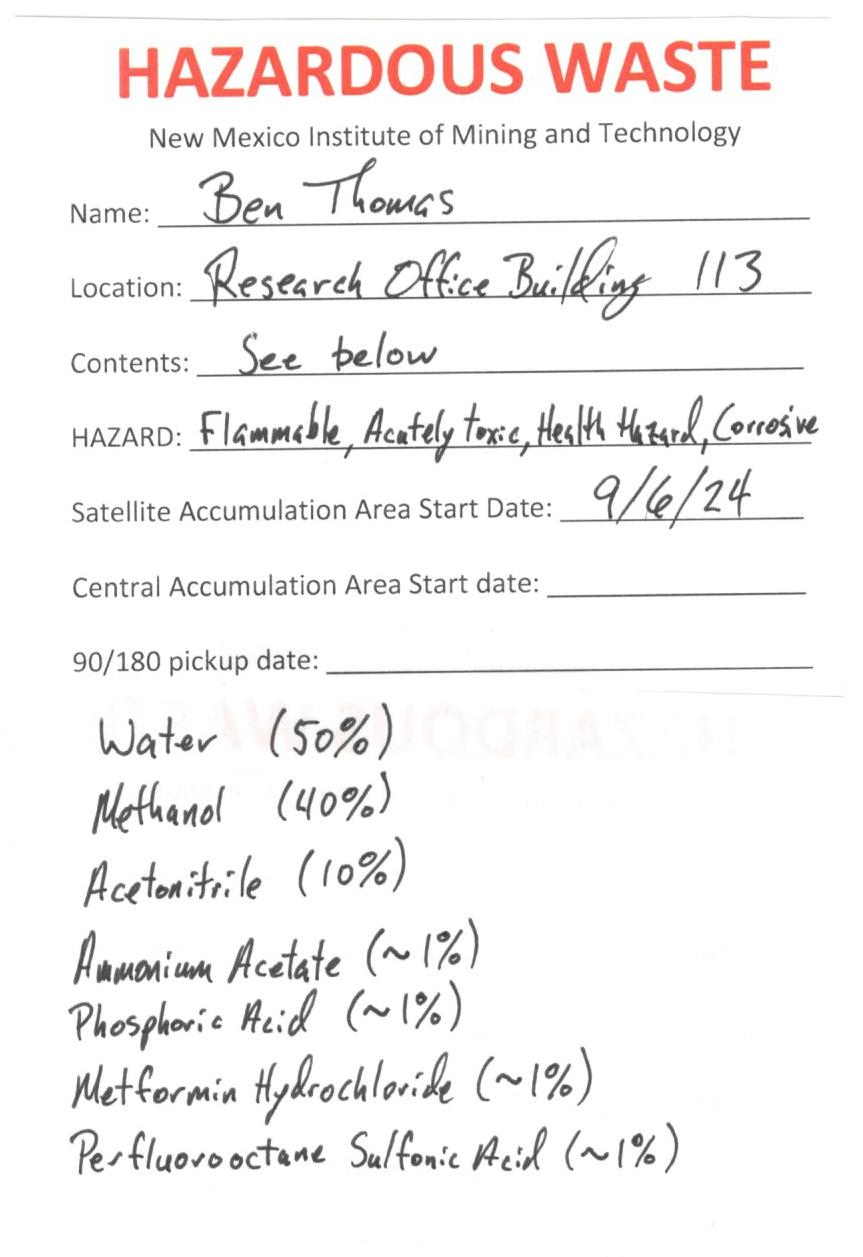 HAZARDOUS WASTE
New Mexico Institute of Mining and Technology
Name: Ben Thomas
Location: Research Office Building 113
Contents: See below
HAZARD: Flammable, Acutely toxic, Health Hazard, Corrosive
Satellite Accumulation Area Start Date: 9/6/24
Central Accumulation Area Start date:
90/180 pickup date:
Water (50%)
Methanol (40%)
Acetonitrile (10%)
Ammonium Acetate (~1%)
Phosphoric Acid (~1%)
Metformin Hydrochloride (~1%)
Perfluorooctane Sulfonic Acid (~1%)